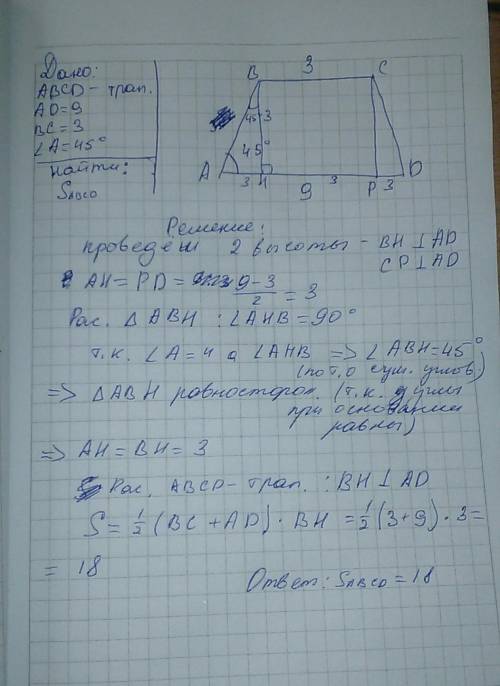 Дано:
ABCD - трап.
AD=9
BC=3
∠A=45°
Найти:
SABCD
B 3 C
45 3
45°
A 3 H 9 3 P 3 D
Решение:
проведём 2 высоты - BH ⊥ AD
CP ⊥ AD
AH = PD = 9-3/2 = 3
Рас. △ABH : ∠AHB = 90°
т.к. ∠A = 4 а ∠AHB => ∠ABH = 45°
(по т. о сум. углов)
=> △ABH равносторон. (т.к. углы
при основании
равны)
=> AH = BH = 3
Рас. ABCD - трап. : BH ⊥ AD
S = 1/2 (BC + AD) · BH = 1/2 (3+9) · 3 =
= 18
Ответ: SABCD = 18